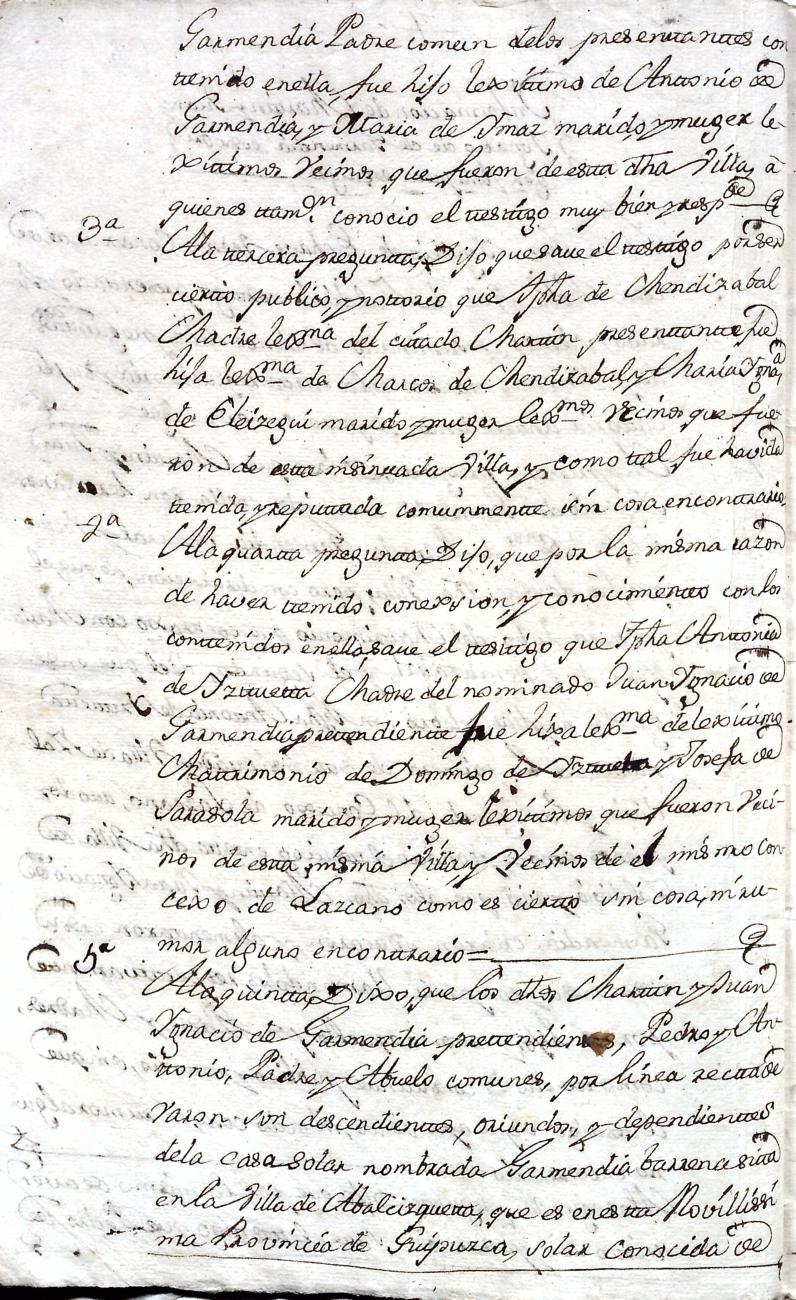 Garmendia Padre comun delos presenttanttes con
ttenido enella, fue hijo lexittimo de Anttonio de
Garmendia, y Maria de Ymaz marido, y muger le-
xittimos Vecinos que fueron de estta dha Villa, a
quienes ttamvn conocio el ttesttigo muy bien y respde
3a Ala ttercera preguntta, Dijo que save el ttesttigo por ser
ciertto publico, y nottorio que Jpha de Mendizabal
Madre lexma del cittado Marttin presenttantte fue
hija lexma de Marcos de Mendizabal, y Maria Ygna
de Eleizegui marido y muger lexmos Vecinos que fue-
ron de estta insinuada Villa, y como ttal fue havida
ttenida, y reputtada comunmentte sin cosa en conttrario.
4a Ala quartta preguntta, Dijo, que por la misma razon
de haver ttenido conexsion, y conocimientto con los
conttenidos enella, save el ttesttigo que Jpha Anttonia
de Yzttuetta Madre del nominado Juan Ygnacio de
Garmendia prettendientte fue hixa lexma del lexittimo
Mattrimonio de Domingo de Yzttuetta y Josefa de
Sarasola marido y muger lexittimos que fueron Veci-
nos de estta misma Villa, y Vecinos de el mismo con-
cexo de Lazcano como es ciertto sin cosa, ni ru-
mor alguno en conttrario=
5a Ala quintta, Dixo, que los dhos Marttin y Juan
Ygnacio de Garmendia prettendientes, Pedro y An-
ttonio, Padre y Abuelo comunes, por linea rectta de
varon son descendienttes, oriundos, y dependienttes
dela casa solar nombrada Garmendia barrena sitta
en la Villa de Abalcizquetta, que es en estta Novilissi
ma Provincia de Guipuzca, solar conocida de